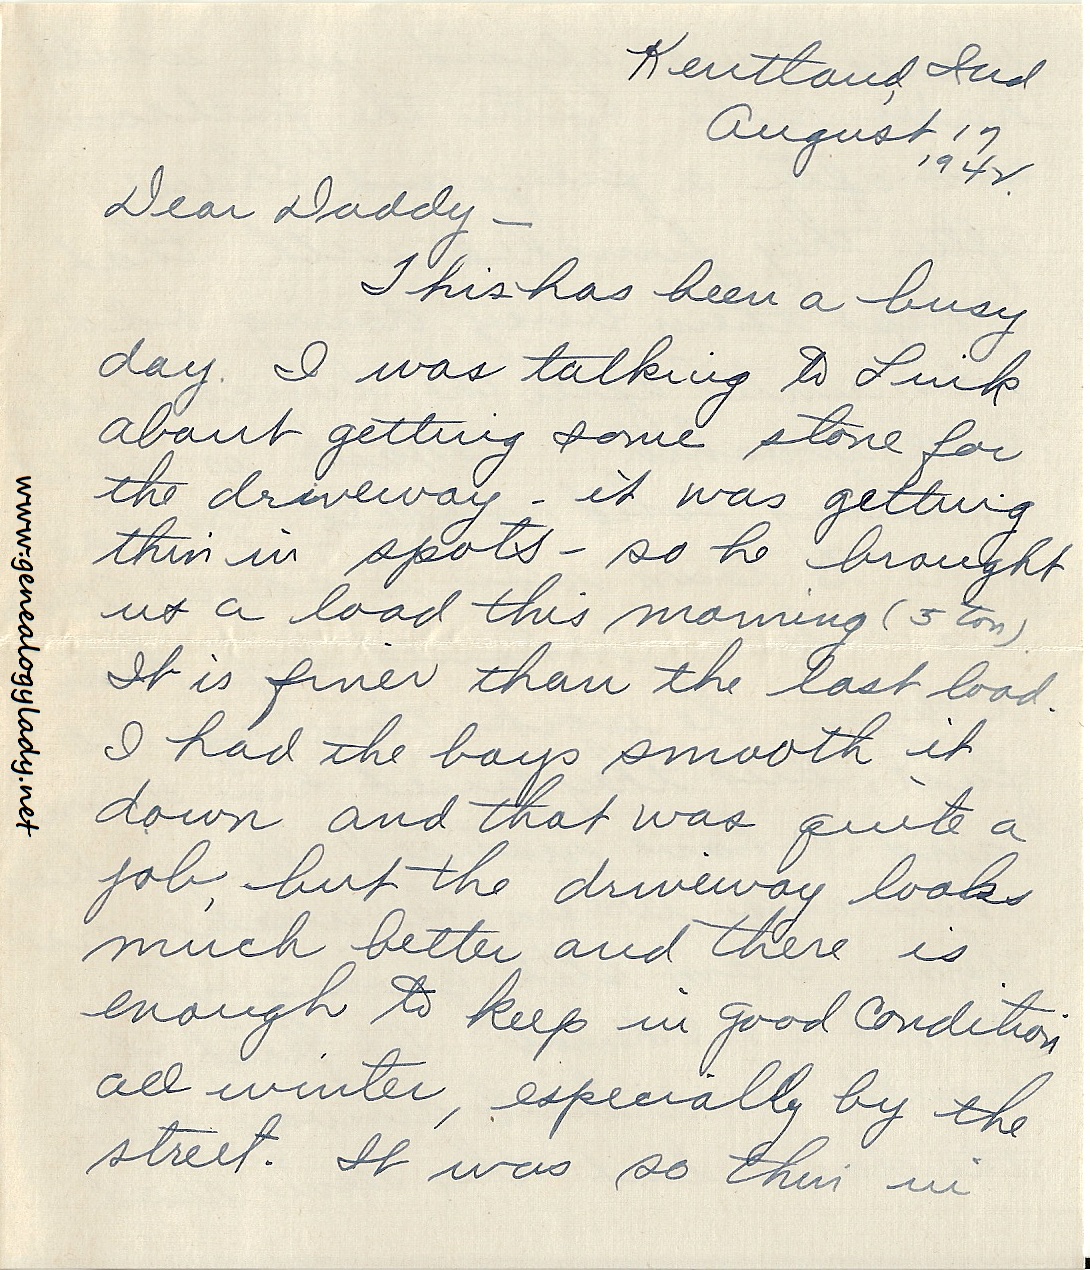 Kentland, Ind
August 17
1942.
Dear Daddy —
This has been a busy
day. I was talking to Link
about getting some stone for
the driveway - it was getting
thin in spots - so he brought
us a load this morning (5 ton).
It is finer than the last load.
I had the boys smooth it
down and that was quite a
job, but the driveway looks
much better and there is
enough to keep in good condition
all winter, especially by the
street. It was so thin in
www.genealogylady.net